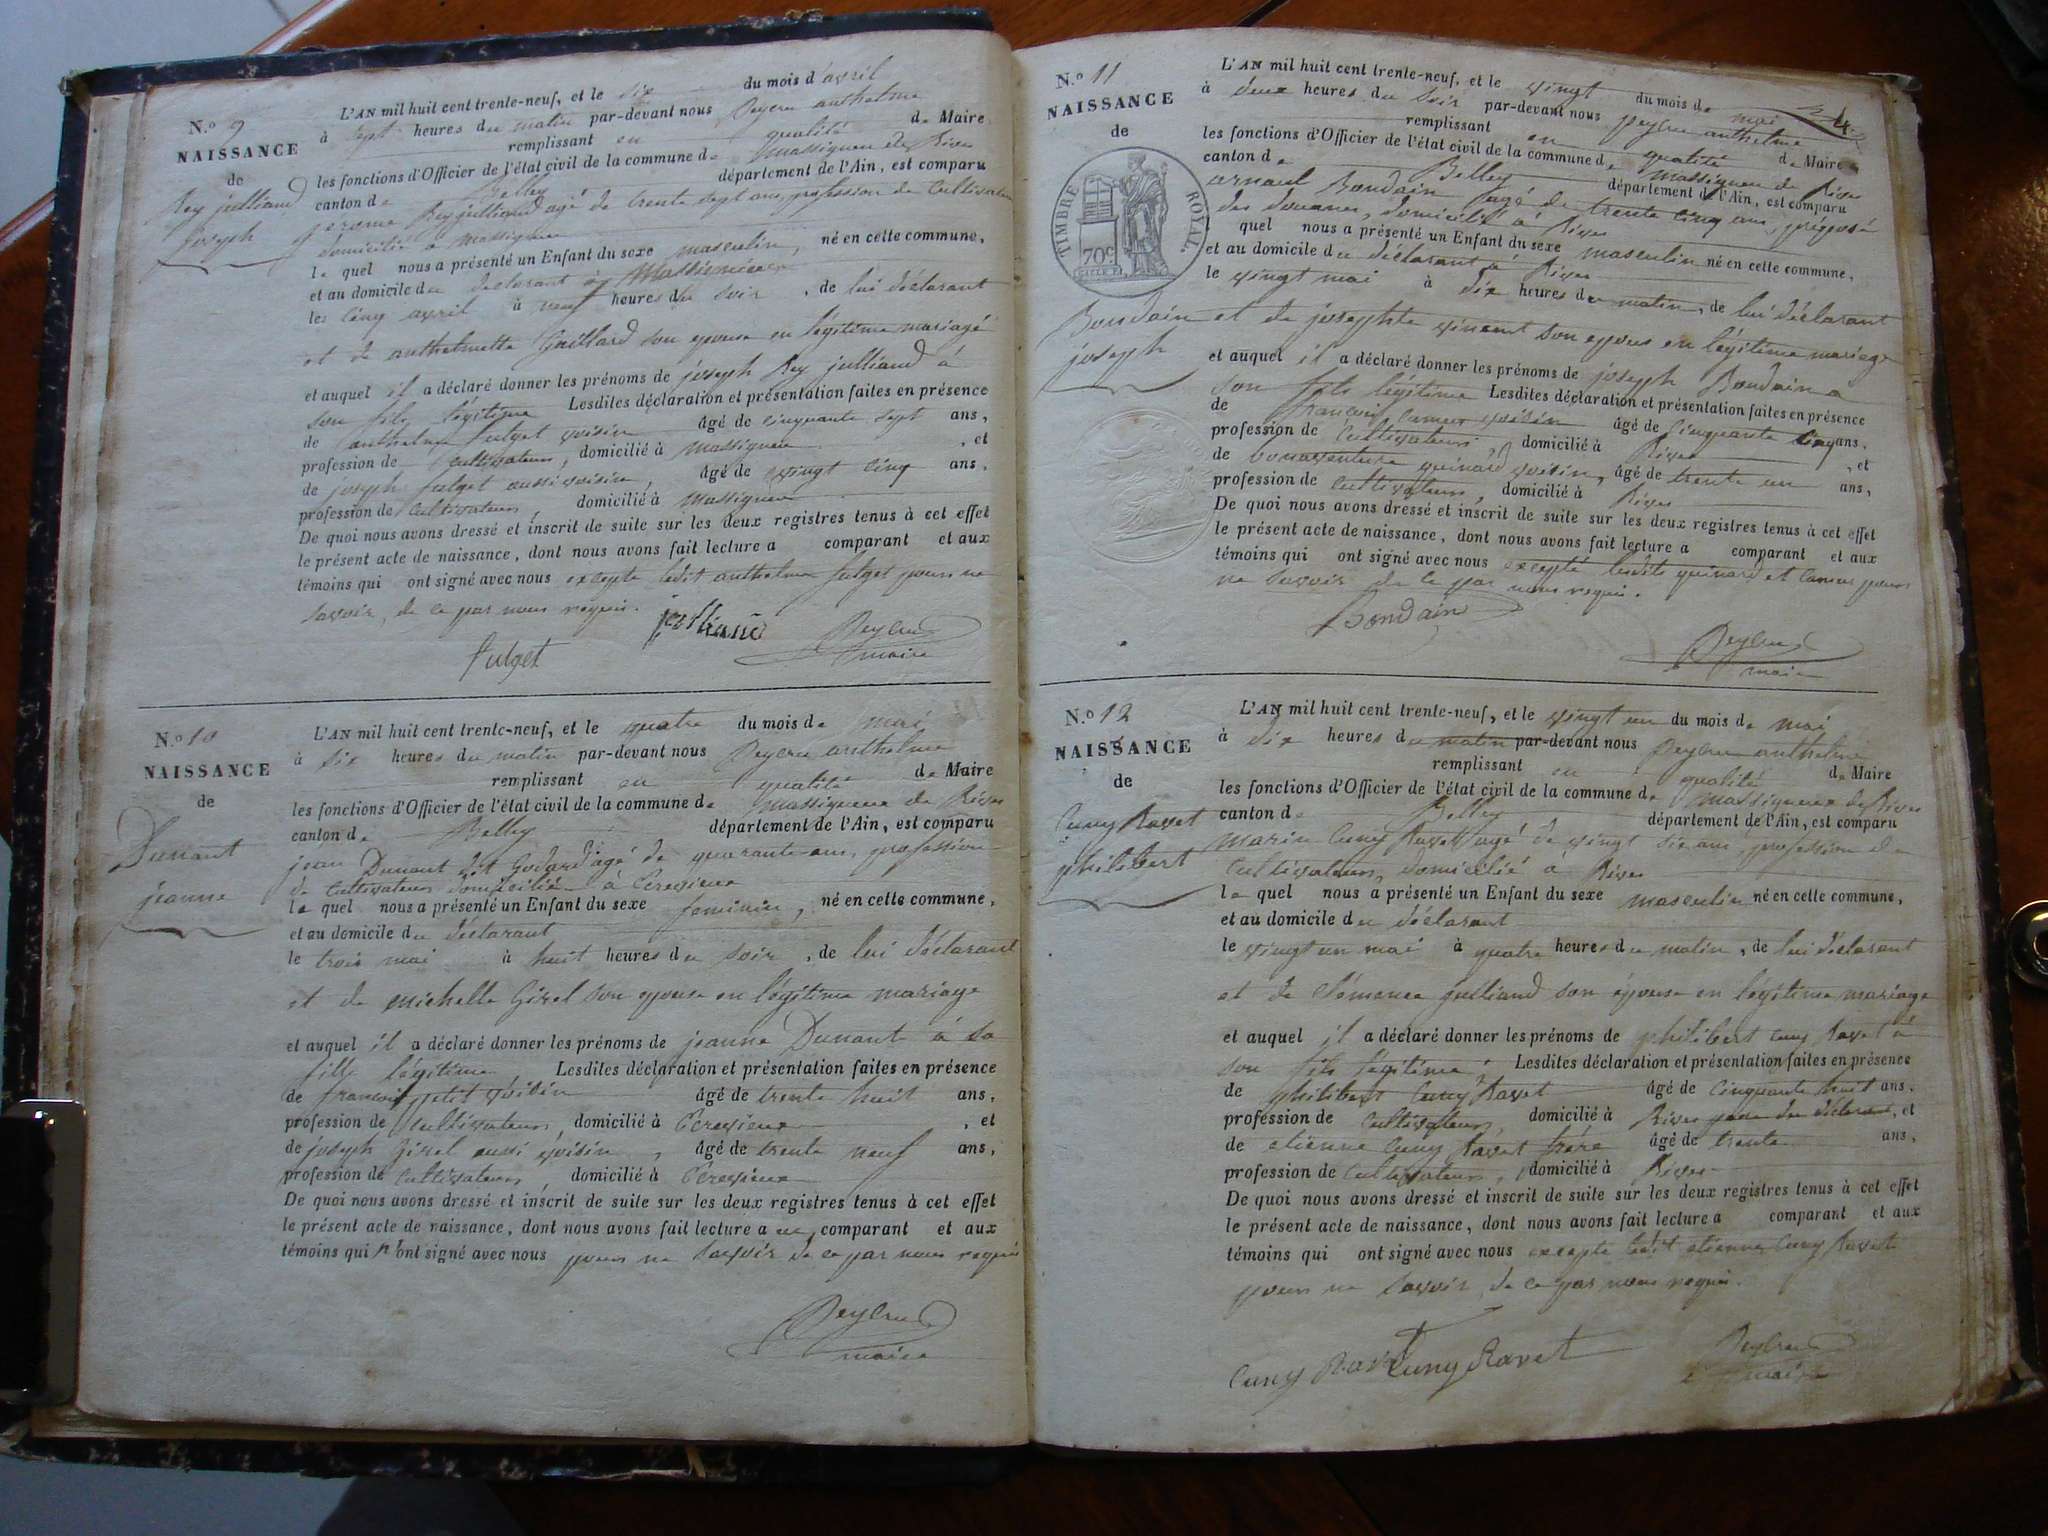 N.º 9
NAISSANCE
de
Rey julliand
joseph
L'AN mil huit cent trente-neuf, et le six du mois d'avril
à sept heures du matin par-devant nous Peycru anthelme
remplissant en qualité de Maire
les fonctions d'Officier de l'état civil de la commune de Massigneu de Rives
canton de Belley département de l'Ain, est comparu
jerome Rey julliand agé de trente sept ans, profession de Cultivateur
domicilié à Massigneu
le quel nous a présenté un Enfant du sexe masculin, né en cette commune,
et au domicile du déclarant à Massigneu
le cinq avril à neuf heures du soir, de lui déclarant
et de anthelmette Gaillard son epouse en légitime mariage
et auquel il a déclaré donner les prénoms de joseph Rey julliand à
son fils légitime Lesdites déclaration et présentation faites en présence
de anthelme fulget voisin âgé de cinquante sept ans,
profession de Cultivateur, domicilié à Massigneu, et
de joseph fulget aussi voisin, âgé de vingt cinq ans,
profession de Cultivateur, domicilié à Massigneu
De quoi nous avons dressé et inscrit de suite sur les deux registres tenus à cet effet
le présent acte de naissance, dont nous avons fait lecture a comparant et aux
témoins qui ont signé avec nous excepte ledit anthelme fulget pour ne
savoir, de ce par nous requis.
fulget julliand Peycru
maire
N.º 10
NAISSANCE
de
Dunant
jeanne
L'AN mil huit cent trente-neuf, et le quatre du mois de mai
à six heures du matin par-devant nous Peycru anthelme
remplissant en qualité de Maire
les fonctions d'Officier de l'état civil de la commune de Massigneux de Rives
canton de Belley département de l'Ain, est comparu
jean Dunant dit Godard agé de quarante ans, profession
de Cultivateur domicilié à Cressieux
le quel nous a présenté un Enfant du sexe feminin, né en cette commune,
et au domicile du déclarant
le trois mai à huit heures du soir, de lui déclarant
et de michelle Girel son epouse en légitime mariage
et auquel il a déclaré donner les prénoms de jeanne Dunant à sa
fille légitime Lesdites déclaration et présentation faites en présence
de francois petit voisin âgé de trente huit ans,
profession de Cultivateur, domicilié à Cressieux, et
de joseph Girel aussi voisin, âgé de trente neuf ans,
profession de Cultivateur, domicilié à Cressieux
De quoi nous avons dressé et inscrit de suite sur les deux registres tenus à cet effet
le présent acte de naissance, dont nous avons fait lecture au comparant et aux
témoins qui n'ont signé avec nous pour ne savoir de ce par nous requis
Peycru
maire
4
N.º 11
NAISSANCE
de
TIMBRE ROYAL
70c
Bondain
joseph
L'AN mil huit cent trente-neuf, et le vingt du mois de mai
à deux heures du soir par-devant nous Peycru anthelme
remplissant en qualité de Maire
les fonctions d'Officier de l'état civil de la commune de Massigneu de Rives
canton de Belley département de l'Ain, est comparu
arnaud Bondain agé de trente cinq ans, préposé
des douanes, domicilié à Rives
quel nous a présenté un Enfant du sexe masculin né en cette commune,
et au domicile du déclarant à Rives
le vingt mai à dix heures du matin, de lui déclarant
et de josephte vincent son epouse en légitime mariage
et auquel il a déclaré donner les prénoms de joseph Bondain a
son fils légitime Lesdites déclaration et présentation faites en présence
de francois voisin âgé de cinquante cinq ans,
profession de Cultivateur domicilié à Rives, et
de bonaventure quinard voisin, âgé de trente un ans,
profession de Cultivateur, domicilié à Rives
De quoi nous avons dressé et inscrit de suite sur les deux registres tenus à cet effet
le présent acte de naissance, dont nous avons fait lecture a comparant et aux
témoins qui ont signé avec nous excepté lesdits quinard et pour
ne savoir de ce par nous requis.
Bondain
Peycru
maire
N.º 12
NAISSANCE
de
Cuny Ravet
philibert
L'AN mil huit cent trente-neuf, et le vingt un du mois de mai
à dix heures du matin par-devant nous Peycru anthelme
remplissant en qualité de Maire
les fonctions d'Officier de l'état civil de la commune de Massigneux de Rives
canton de Belley département de l'Ain, est comparu
marin Cuny Ravet agé de vingt six ans, profession de
Cultivateur, domicilié à Rives
le quel nous a présenté un Enfant du sexe masculin né en cette commune,
et au domicile du déclarant
le vingt un mai à quatre heures du matin, de lui déclarant
et de Clémence julliand son épouse en légitime mariage
et auquel il a déclaré donner les prénoms de philibert Cuny Ravet à
son fils légitime, Lesdites déclaration et présentation faites en présence
de philibert Cuny Ravet âgé de cinquante huit ans,
profession de Cultivateur, domicilié à Rives pere du déclarant, et
de etienne Cuny Ravet frère âgé de trente ans,
profession de Cultivateur, domicilié à Rives
De quoi nous avons dressé et inscrit de suite sur les deux registres tenus à cet effet
le présent acte de naissance, dont nous avons fait lecture a comparant et aux
témoins qui ont signé avec nous excepte ledit etienne Cuny Ravet
pour ne savoir, de ce par nous requis.
Cuny Ravet Cuny Ravet Peycru
maire